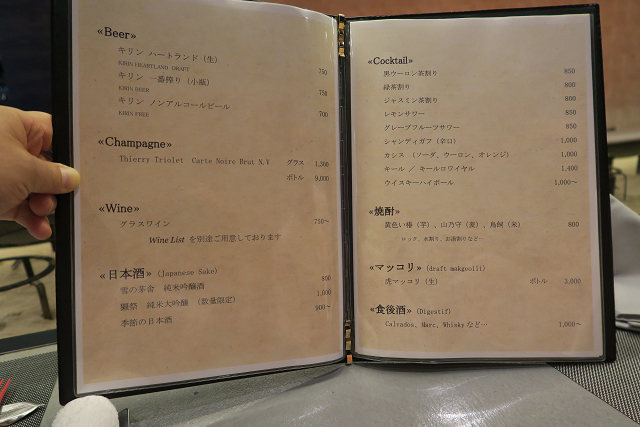 «Beer»
キリン ハートランド（生）
KIRIN HEARTLAND DRAFT 750
キリン 一番搾り（小瓶）
KIRIN BEER 750
キリン ノンアルコールビール
KIRIN FREE 700
«Champagne»
Thierry Triolet Carte Noire Brut N.V グラス 1,300
ボトル 9,000
«Wine»
グラスワイン 750～
Wine List を別途ご用意しております
«日本酒» (Japanese Sake)
雪の茅舎 純米吟醸酒 800
獺祭 純米大吟醸 （数量限定） 1,000
季節の日本酒 900～
«Cocktail»
黒ウーロン茶割り 850
緑茶割り 800
ジャスミン茶割り 800
レモンサワー 850
グレープフルーツサワー 850
シャンディガフ（辛口） 1,000
カシス （ソーダ、ウーロン、オレンジ） 1,000
キール ／ キールロワイヤル 1,400
ウイスキーハイボール 1,000～
«焼酎»
黄色い椿（芋）、山乃守（麦）、鳥飼（米） 800
ロック、水割り、お湯割りなど…
«マッコリ» (draft makgeolli)
虎マッコリ（生） ボトル 3,000
«食後酒» (Digestif)
Calvados、Marc、Whisky など… 1,000～